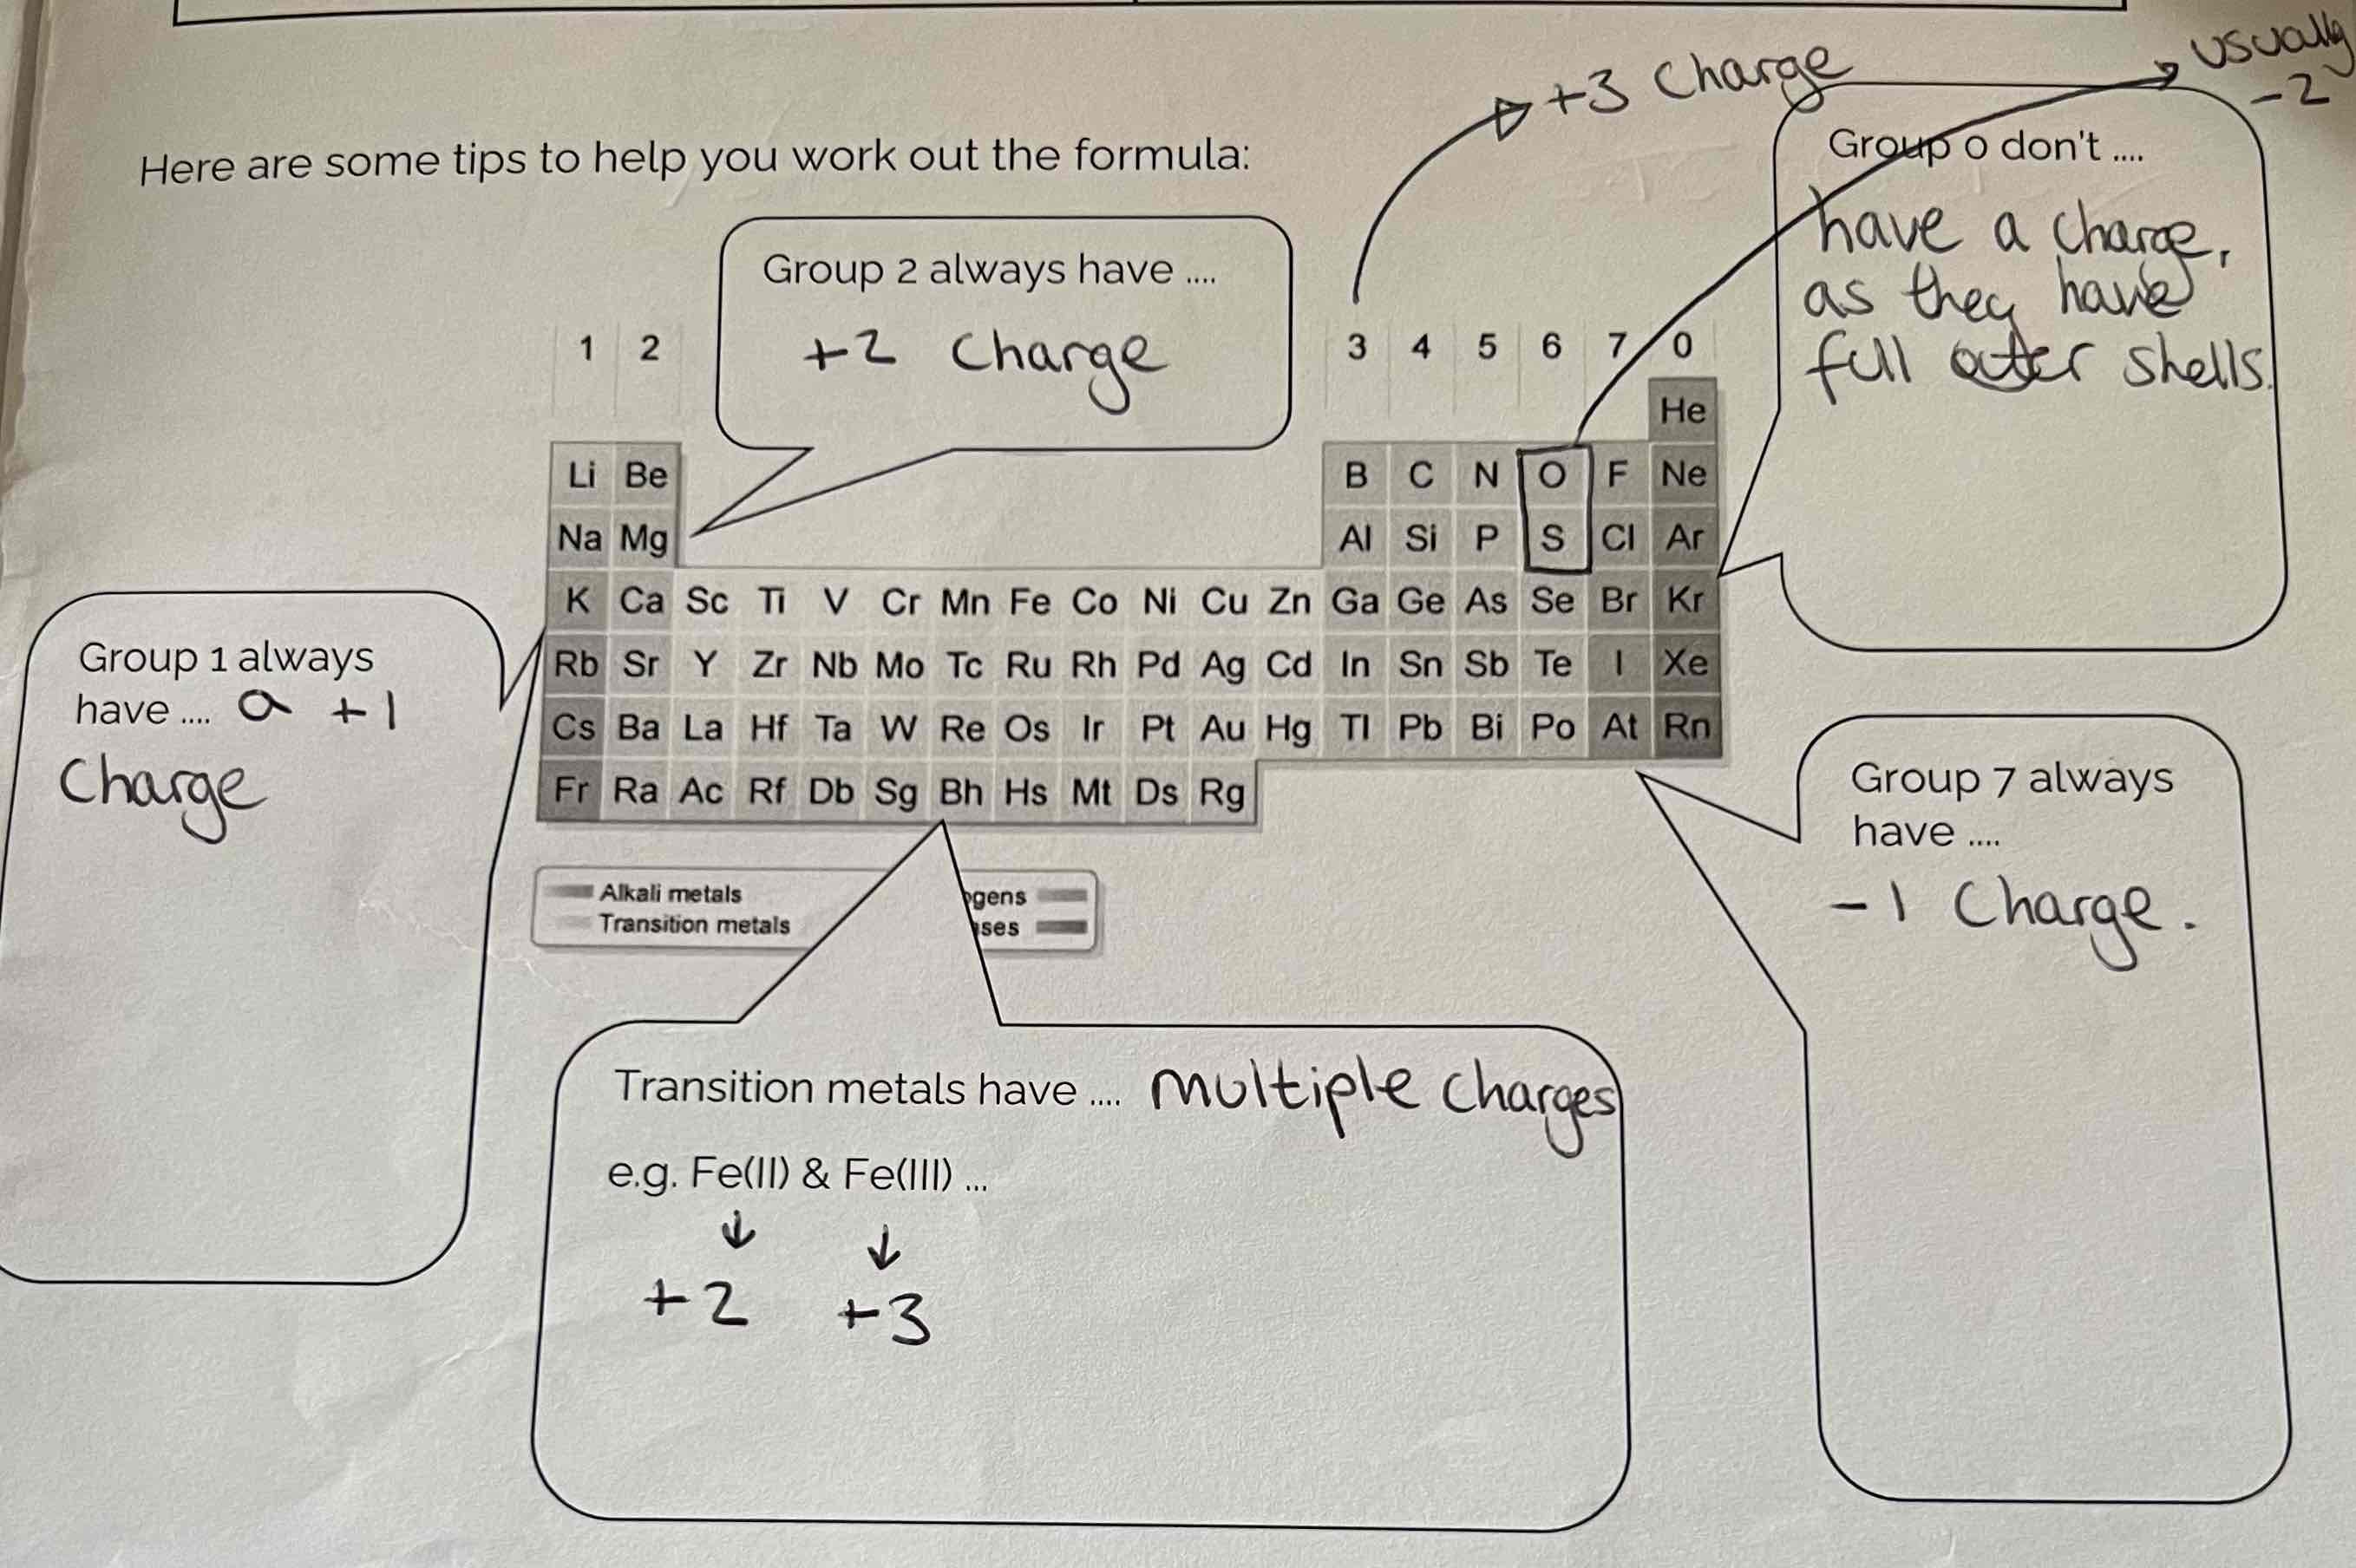 usually
-2
+3 Charge
Here are some tips to help you work out the formula:
Group 0 don't ....
have a charge,
as they have
full outer shells.
Group 2 always have ....
+2 Charge
1 2 3 4 5 6 7 0
He
Li Be B C N O F Ne
Na Mg Al Si P S Cl Ar
K Ca Sc Ti V Cr Mn Fe Co Ni Cu Zn Ga Ge As Se Br Kr
Rb Sr Y Zr Nb Mo Tc Ru Rh Pd Ag Cd In Sn Sb Te I Xe
Cs Ba La Hf Ta W Re Os Ir Pt Au Hg Tl Pb Bi Po At Rn
Fr Ra Ac Rf Db Sg Bh Hs Mt Ds Rg
Group 1 always
have .... a +1
Charge
Alkali metals
Transition metals
ogens
ses
Group 7 always
have ....
-1 Charge.
Transition metals have .... multiple charges
e.g. Fe(II) & Fe(III) ...
↓ ↓
+2 +3